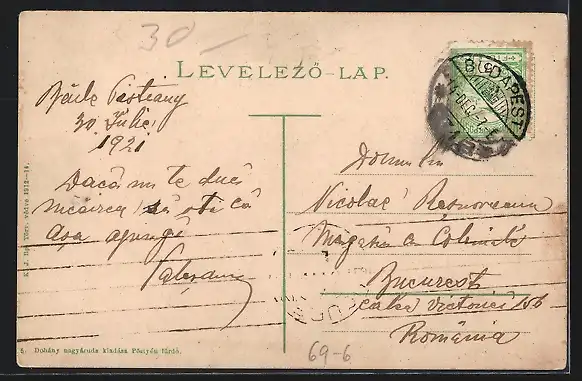 30 —
LEVELEZŐ-LAP.
Băile Pisteany
30 Iulie
1921
Dacă nu te duci
nicăirea, să știi că
așa ajungi
BUDAPEST
Domnului
Nicolae
Magazin de Coloniale
Bucuresti
Calea Victoriei 156
România
69-6
Dohány nagyáruda kiadása Pöstyén fürdő.